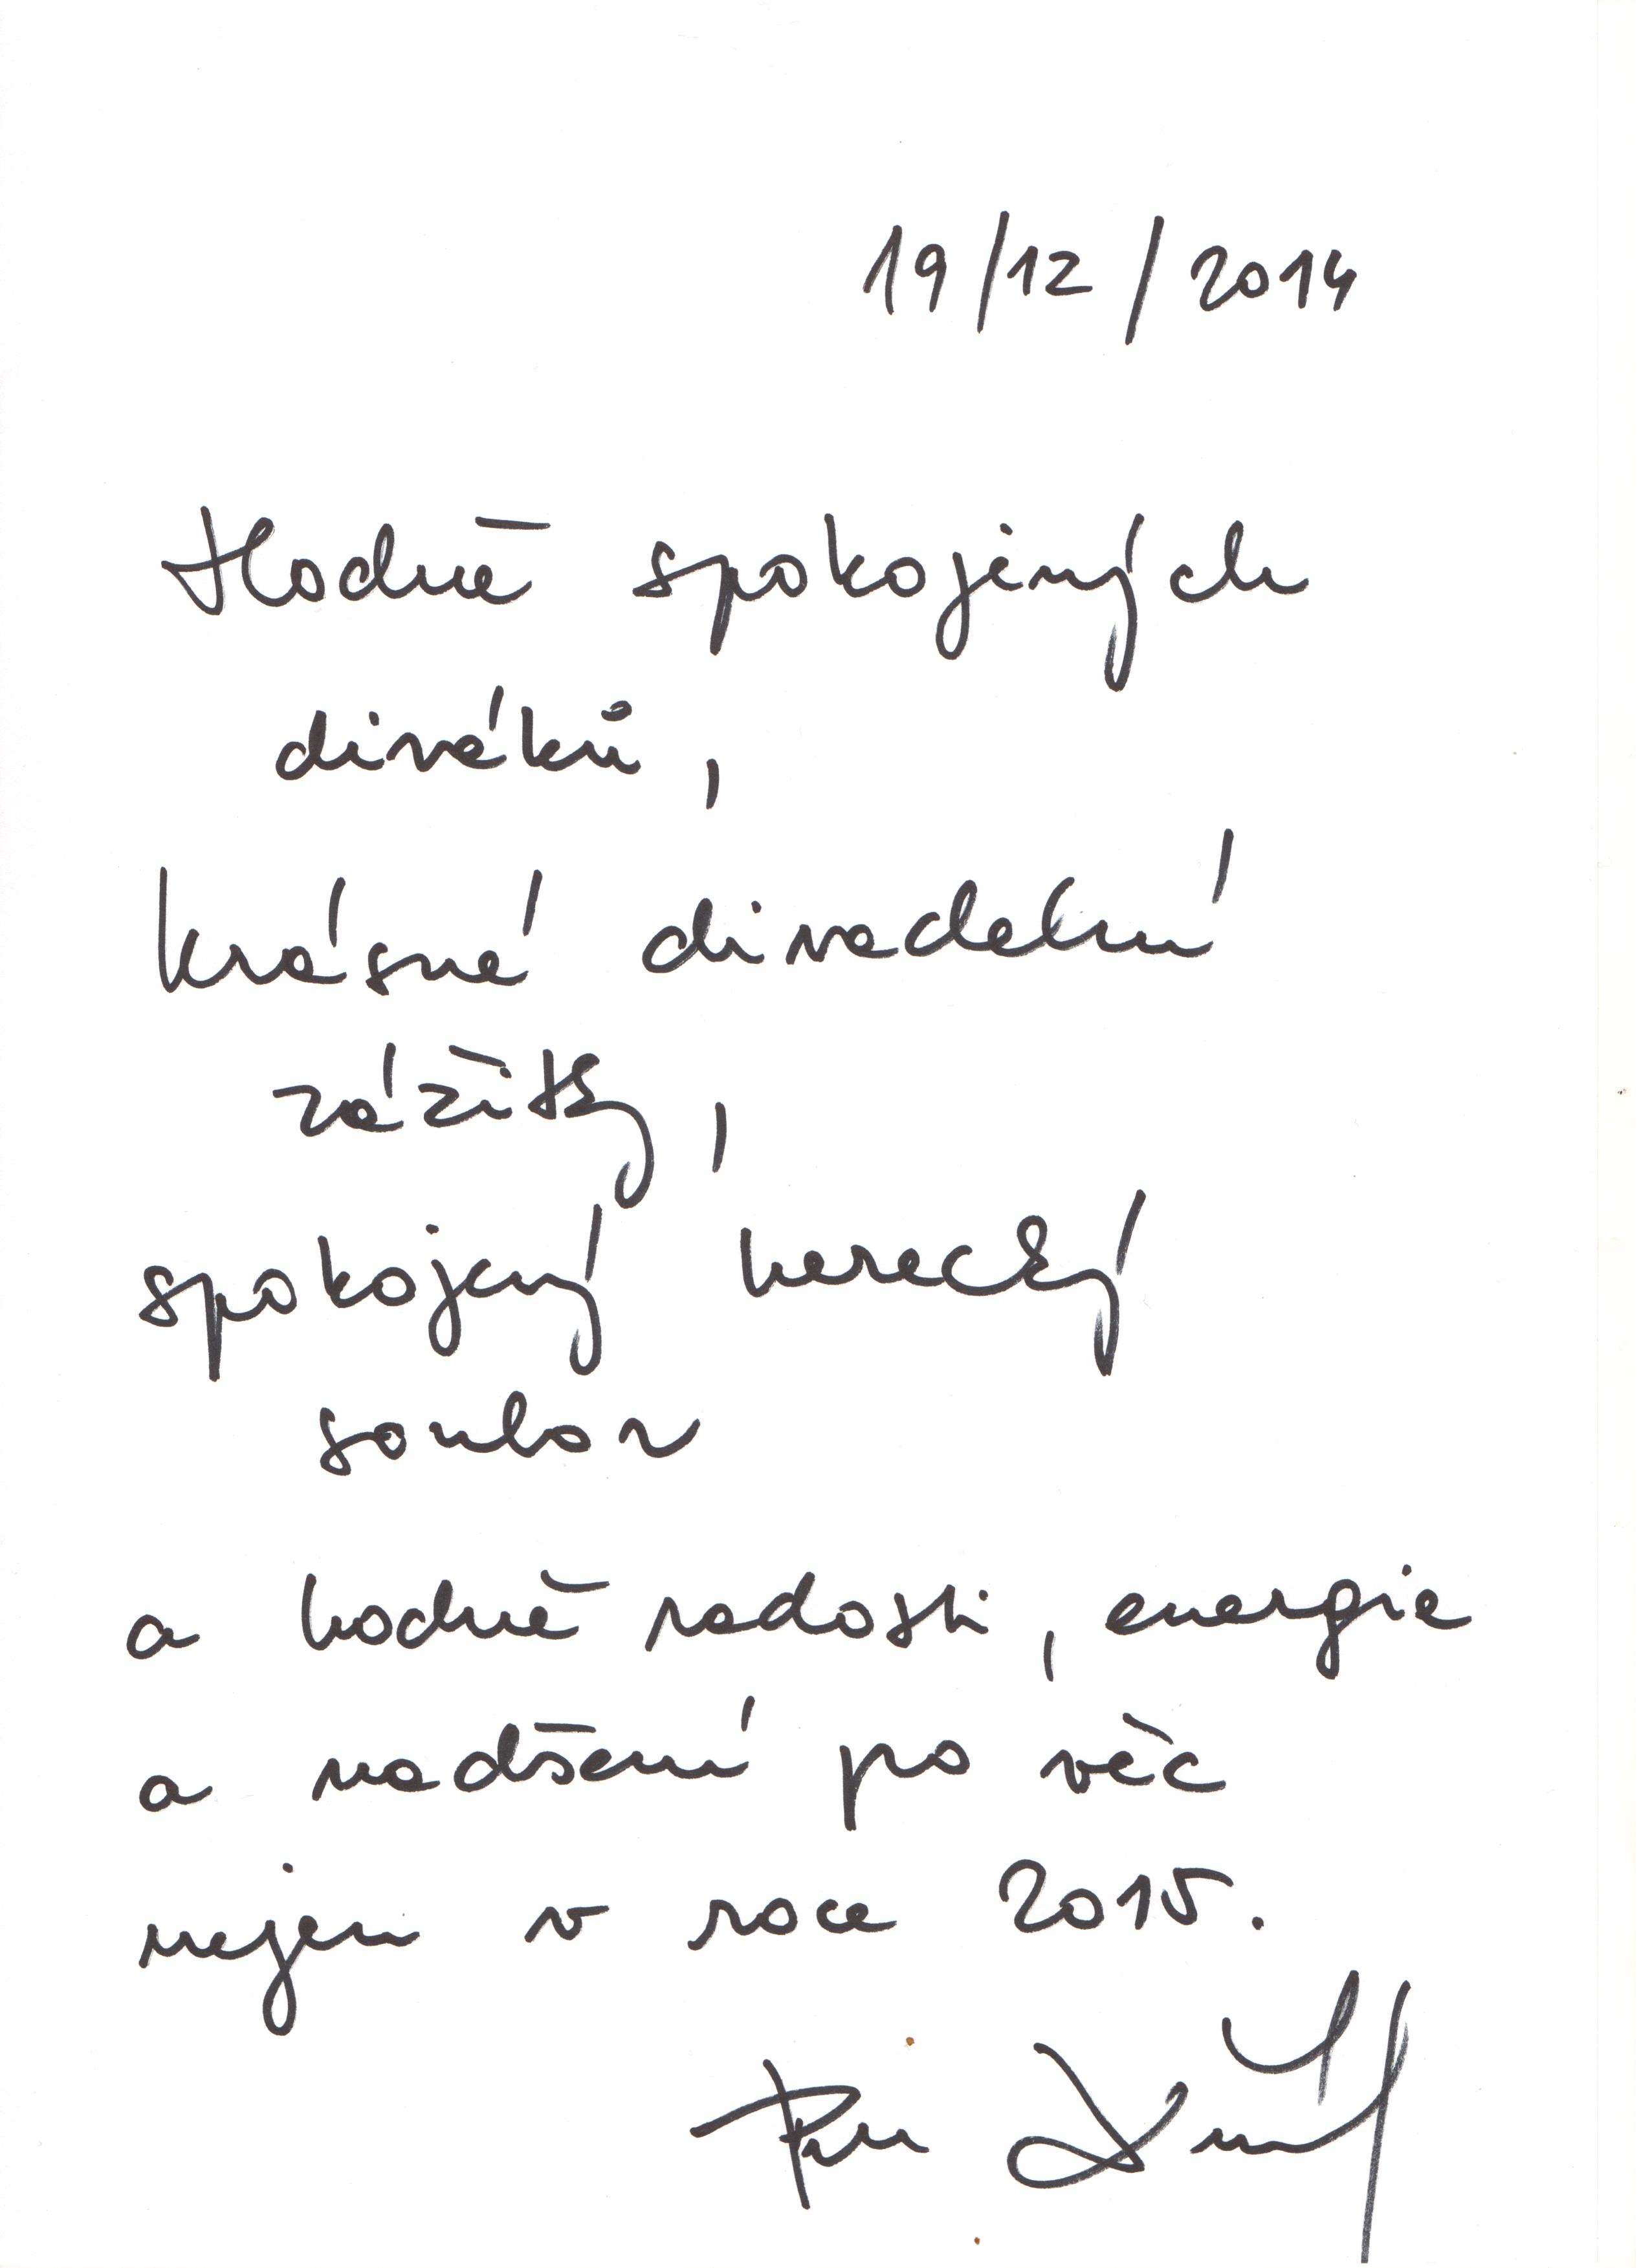 19/12/2014
Hodně spokojených
diváků,
krásné divadelní
zážitky,
spokojený herecký
soubor
a hodně radosti, energie
a nadšení pro věc
nejen v roce 2015.